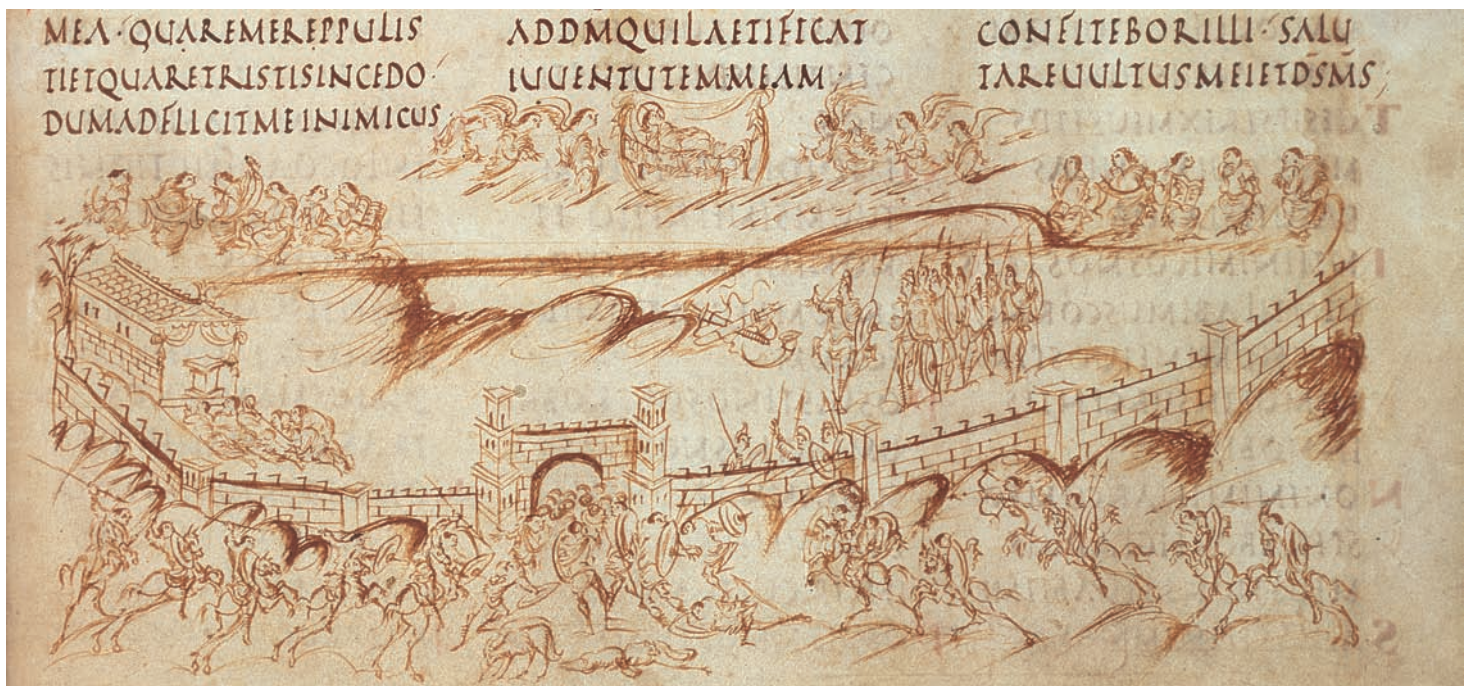 MEA·QUAREMEREPPULIS
TIETQUARETRISTISINCEDO·
DUMADFLIGITMEINIMICUS
ADDMQUILAETIFICAT
IUUENTUTEMMEAM·
CONFITEBORILLI·SALU
TAREUULTUSMEIETDS̄MS̄